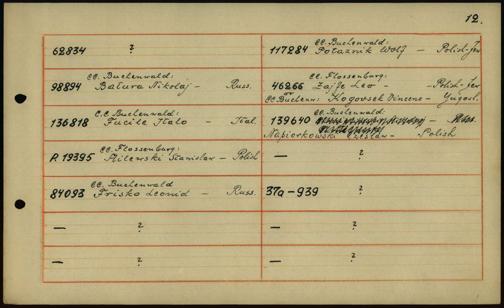 12.
62834 ?
98894 CC. Buchenwald:
Batura Nikolaj - Russ.
136818 C.C. Buchenwald:
Fucile Italo - Ital.
R 19395 CC. Flossenburg:
Milewski Stanislaw - Polish
84093 CC. Buchenwald
Frisko Leonid - Russ.
— ?
— ?
117284 CC. Buchenwald:
Potaznik Wolf - Polish-Jew
46266 CC. Flossenburg:
Zajfe Leo - Polish-Jew
or CC Buchenw: Kogovsek Vincenc - Yugosl.
139640 CC. Buchenwald
Napiorkowski Czeslaw - Polish
— ?
37a-939 ?
— ?
— ?